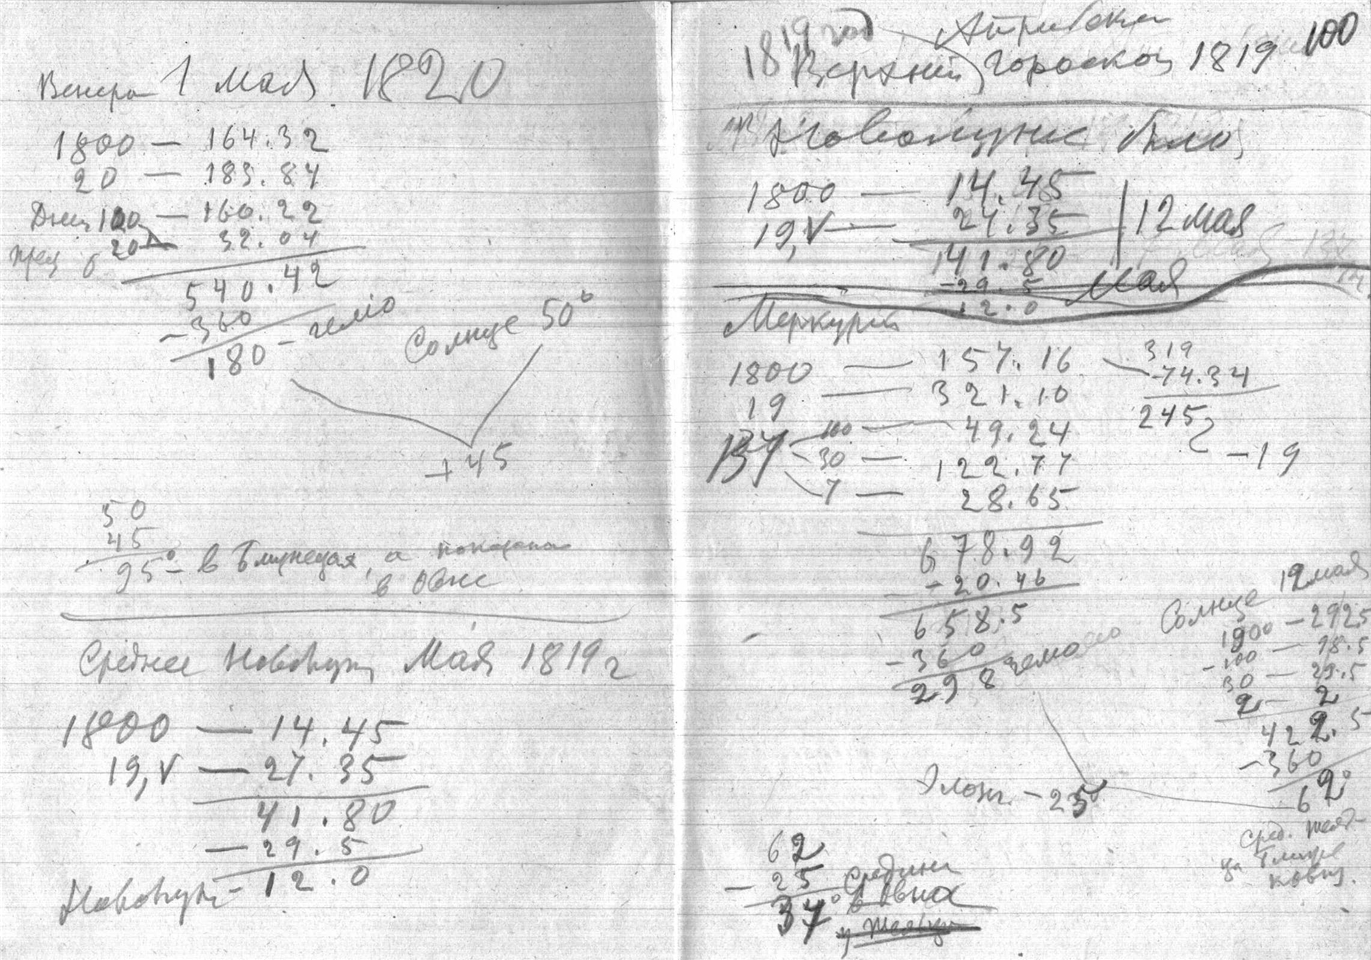 Венера 1 мая 1820
1800 — 164.32
20 — 183.84
Дни 100 — 160.22
20 — 32.04
540.42
-360
180 - гелио
Солнце 50°
+45
50
45
95° - в Близнецах, а показана
в Овне
Среднее Новолун. Мая 1819 г
1800 — 14.45
19,V — 27.35
41.80
— 29.5
Новолун - 12.0
1819 год
100
Верхний гороскоп 1819
Новолуние было
1800 — 14.45
19,V — 27.35
12 мая
141.80
-29.5
12.0
Мая
Меркурий
1800 — 157.16
19 — 321.10
137
100 — 49.24
30 — 122.77
7 — 28.65
678.92
- 20.46
658.5
- 360
298 гелио
319
-74.34
245
-19
Солнце 12 мая
1900 — 292.5
-100 — 98.5
30 — 29.5
2 — 2
422.5
-360
62°
Элонг. -25°
62
- 25
37° Средина
в Овна